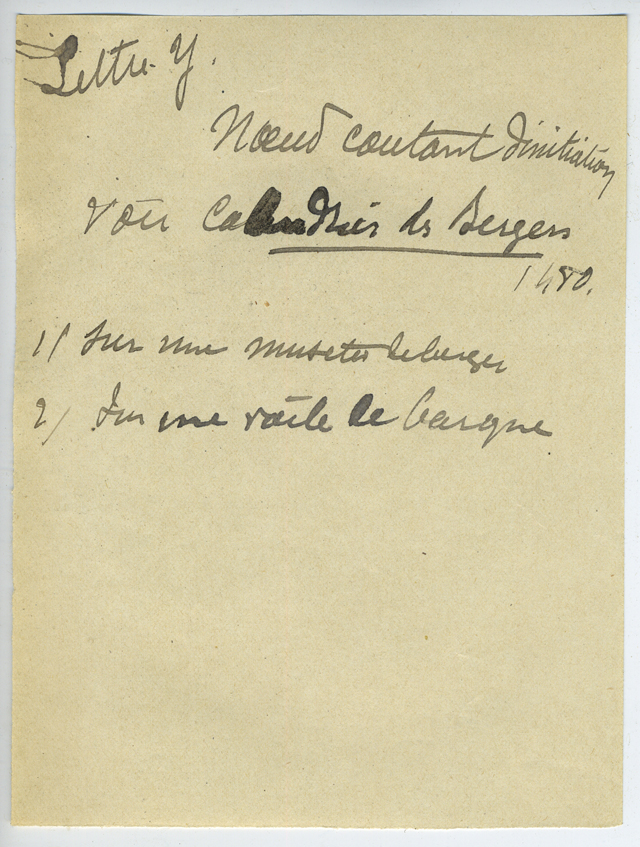 Lettre Y.
Nœud coutant d'initiation
voir Calendrier des Bergers
1480.
1/ sur une musette de berger
2/ sur une voile de barque